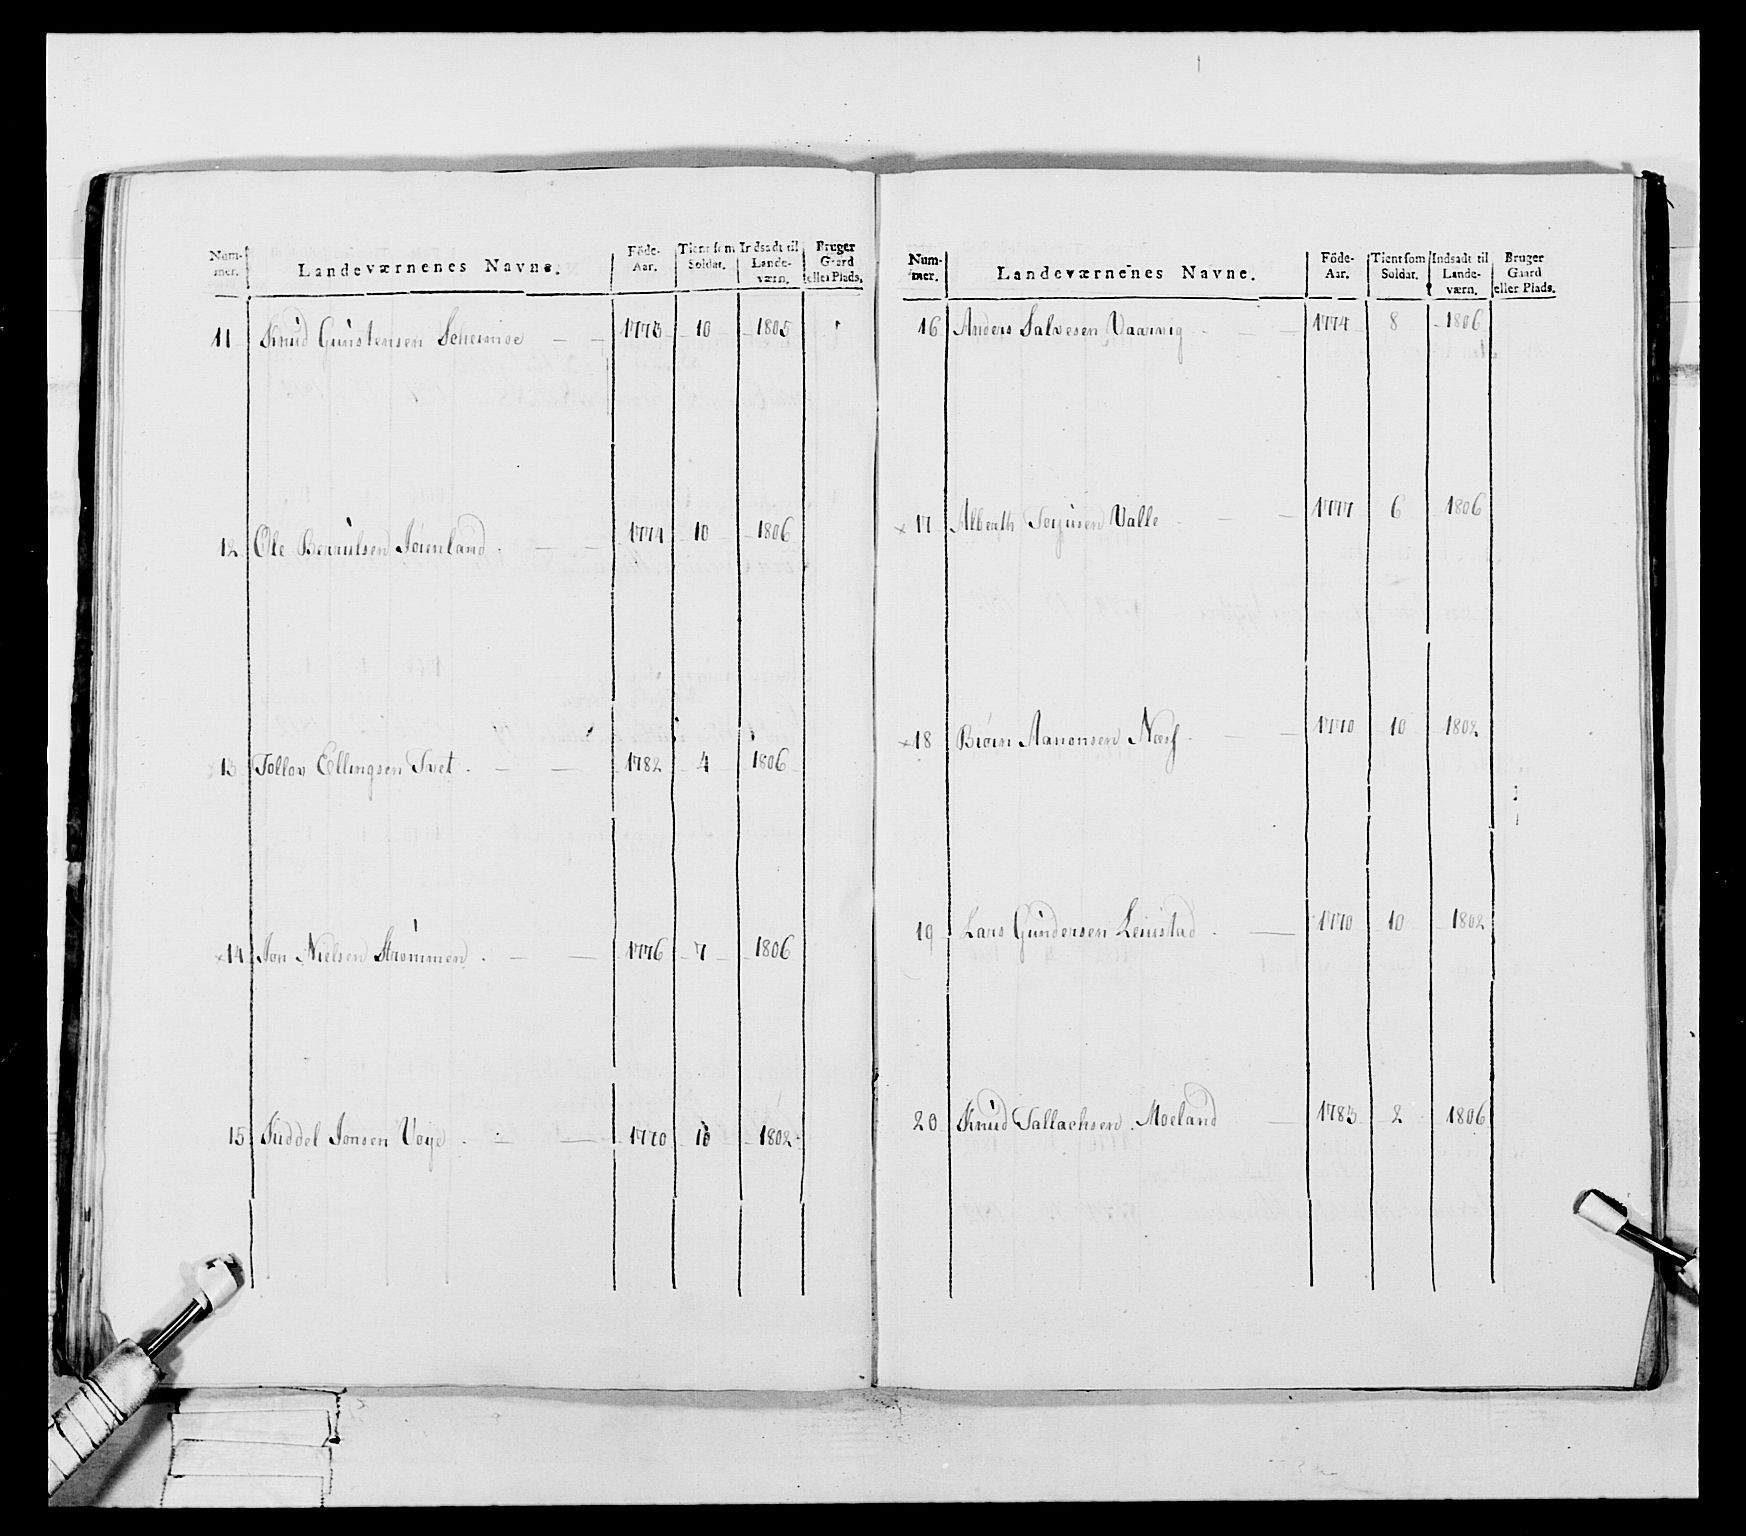 Num-
mer.
Landeværnenes Navne.
Föde-
Aar.
Tient som
Soldat.
Indsadt til
Lande-
værn.
Bruger
Gaard
eller Plads.
11 Knud Gunstensen 1773 10 1805
12 Ole Berulsen 1774 10 1806
13 Tollov Ellingsen Tvet 1782 4 1806
14 Jon Nielsen Strømmen 1776 7 1806
15 Siddel Jonsen Voye 1770 10 1802
Num-
mer.
Landeværnenes Navne.
Föde-
Aar.
Tient som
Soldat.
Indsadt til
Lande-
værn.
Bruger
Gaard
eller Plads.
16 Anders Salvesen 1774 8 1806
× 17 Valle 1777 6 1806
× 18 Biörn Aanonsen Næss 1770 10 1802
19 Lars Gundersen 1770 10 1802
20 Knud Tallachsen Moeland 1783 2 1806